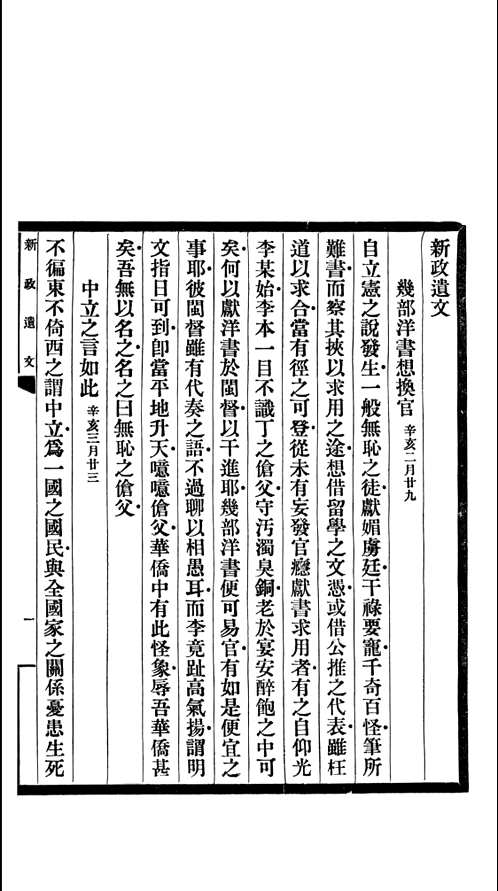 新政遺文
幾部洋書想換官 辛亥二月廿九
自立憲之說發生一般無恥之徒獻媚虜廷干祿要寵千奇百怪筆所
難書而察其挾以求用之途想借留學之文憑或借公推之代表雖枉
道以求合當有徑之可登從未有妄發官癮獻書求用者有之自仰光
李某始李本一目不識丁之傖父守汚濁臭銅老於宴安醉飽之中可
矣何以獻洋書於閩督以干進耶幾部洋書便可易官有如是便宜之
事耶彼閩督雖有代奏之語不過聊以相愚耳而李竟趾高氣揚謂明
文指日可到卽當平地升天噫噫傖父華僑中有此怪象辱吾華僑甚
矣吾無以名之名之曰無恥之傖父
中立之言如此 辛亥三月廿三
不偏東不倚西之謂中立爲一國之國民與全國家之關係憂患生死
新政遺文 一